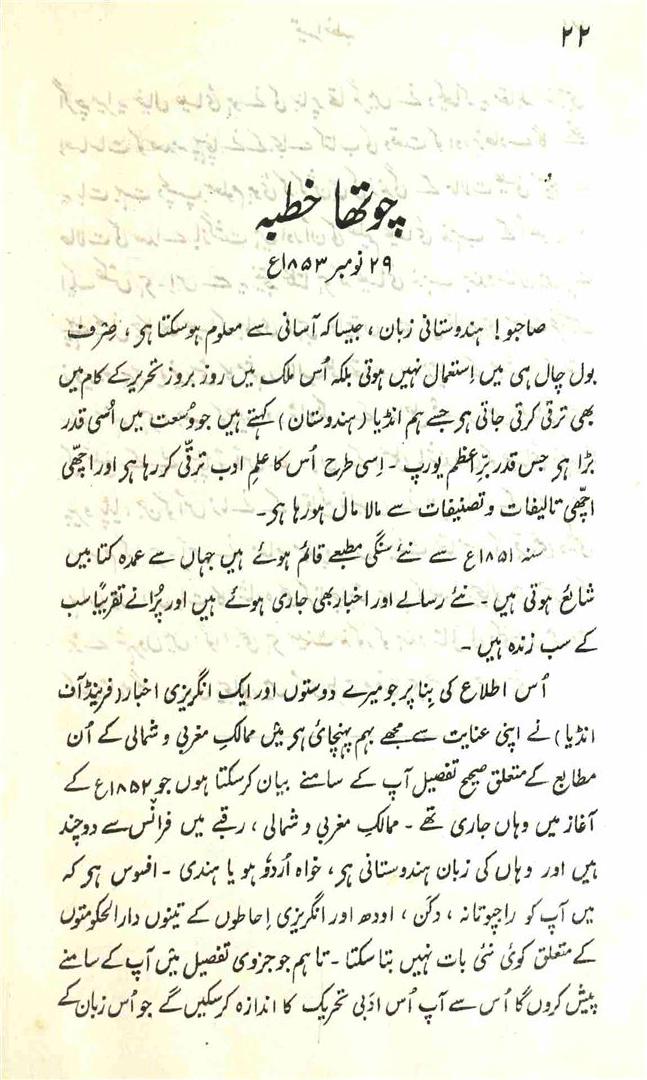 ۲۲
چوتھا خطبہ
۲۹ نومبر ۱۸۵۳ع
صاحبو! ہندوستانی زبان، جیسا کہ آسانی سے معلوم ہوسکتا ہی، صِرف
بول چال ہی میں اِستعمال نہیں ہوتی بلکہ اُس ملک میں روز بروز تحریر کے کام میں
بھی ترقی کرتی جاتی ہی جسے ہم انڈیا (ہندوستان) کہتے ہیں جو وُسعت میں اُسی قدر
بڑا ہی جس قدر برِّاعظم یورپ۔ اِسی طرح اُس کا علمِ ادب ترقّی کررہا ہی اور اچھّی
اچھّی تالیفات و تصنیفات سے مالا مال ہورہا ہی۔
سنہ ۱۸۵۱ع سے نئے سنگی مطبعے قائم ہوئے ہیں جہاں سے عمدہ کتابیں
شائع ہوتی ہیں۔ نئے رسالے اور اخبار بھی جاری ہوئے ہیں اور پُرانے تقریباً سب
کے سب زندہ ہیں۔
اُس اطلاع کی بِنا پر جو میرے دوستوں اور ایک انگریزی اخبار (فرینڈ آف
انڈیا) نے اپنی عنایت سے مجھے بہم پہنچائی ہی میں ممالکِ مغربی و شمالی کے اُن
مطابع کے متعلق صحیح تفصیل آپ کے سامنے بیان کرسکتا ہوں جو ۱۸۵۲ع کے
آغاز میں وہاں جاری تھے۔ ممالکِ مغربی و شمالی، رقبے میں فرانس سے دوچند
ہیں اور وہاں کی زبان ہندوستانی ہی، خواہ اُردو ہو یا ہندی۔ افسوس ہی کہ
میں آپ کو راجپوتانہ، دکن، اودھ اور انگریزی اِحاطوں کے تینوں دارالحکومتوں
کے متعلق کوئی نئی بات نہیں بتا سکتا۔ تاہم جو جزوی تفصیل میں آپ کے سامنے
پیش کروں گا اُس سے آپ اُس ادَبی تحریک کا اندازہ کرسکیں گے جو اُس زبان کے